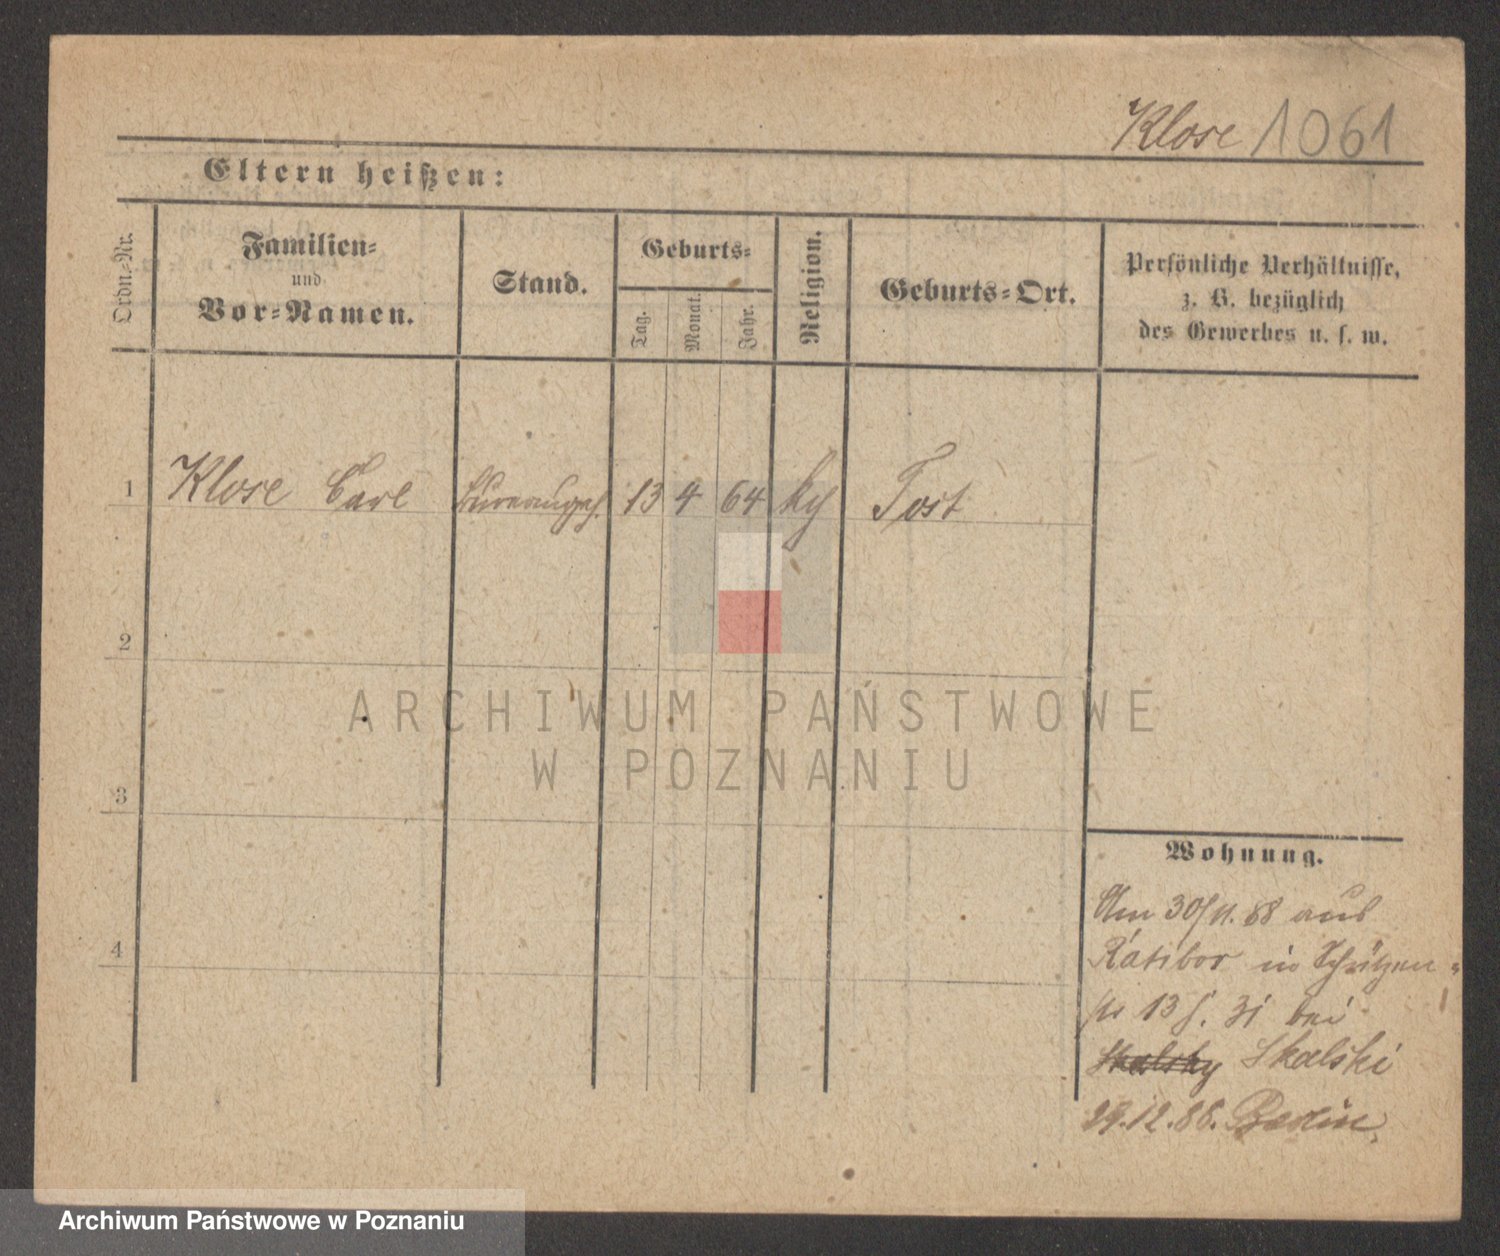 Klose 1061
Eltern heißen:
Ordn.-Nr.
Familien-
und
Vor-Namen.
Stand.
Geburts-
Tag.
Monat.
Jahr.
Religion.
Geburts-Ort.
Persönliche Verhältnisse,
z. B. bezüglich
des Gewerbes u. s. w.
1 Klose Carl Bureaugeh. 13 4 64 kg Tost
2
3
4
Wohnung.
Am 30/11. 88 aus
Ratibor in Schützen-
13 31 bei
Skalsky Skalski
29.12.88. Berlin
ARCHIWUM PAŃSTWOWE
W POZNANIU
Archiwum Państwowe w Poznaniu